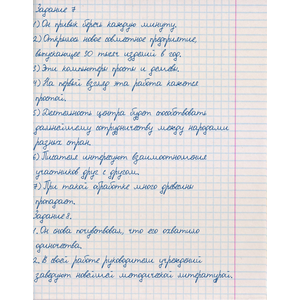 Задание 7
1) Он привык беречь каждую минуту.
2) Открылось новое совместное предприятие,
выпускающее 90 тысяч изделий в год.
3) Эти компьютеры просты и дешевы.
4) На первый взгляд эта работа кажется
простой.
5) Деятельность центра будет способствовать
дальнейшему сотрудничеству между народами
разных стран.
6) Писателя интересуют взаимоотношения
участников друг с другом.
7) При такой обработке много древесины
пропадает.
Задание 8.
1. Он снова почувствовал, что его охватило
одиночество.
2. В своей работе руководители учреждений
заведуют новейшей методической литературой.